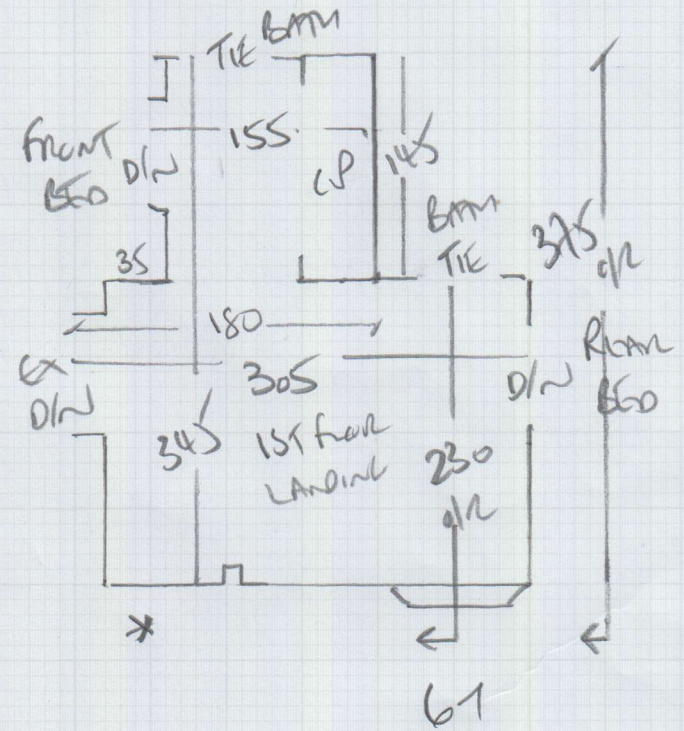 BATH
TIE
FRONT
BED
D/N
155
CP
145
BATH
TIE
375
O/R
35
180
EX
D/N
305
D/N
REAR
BED
345
1ST FLOOR
LANDING
230
O/R
*
61